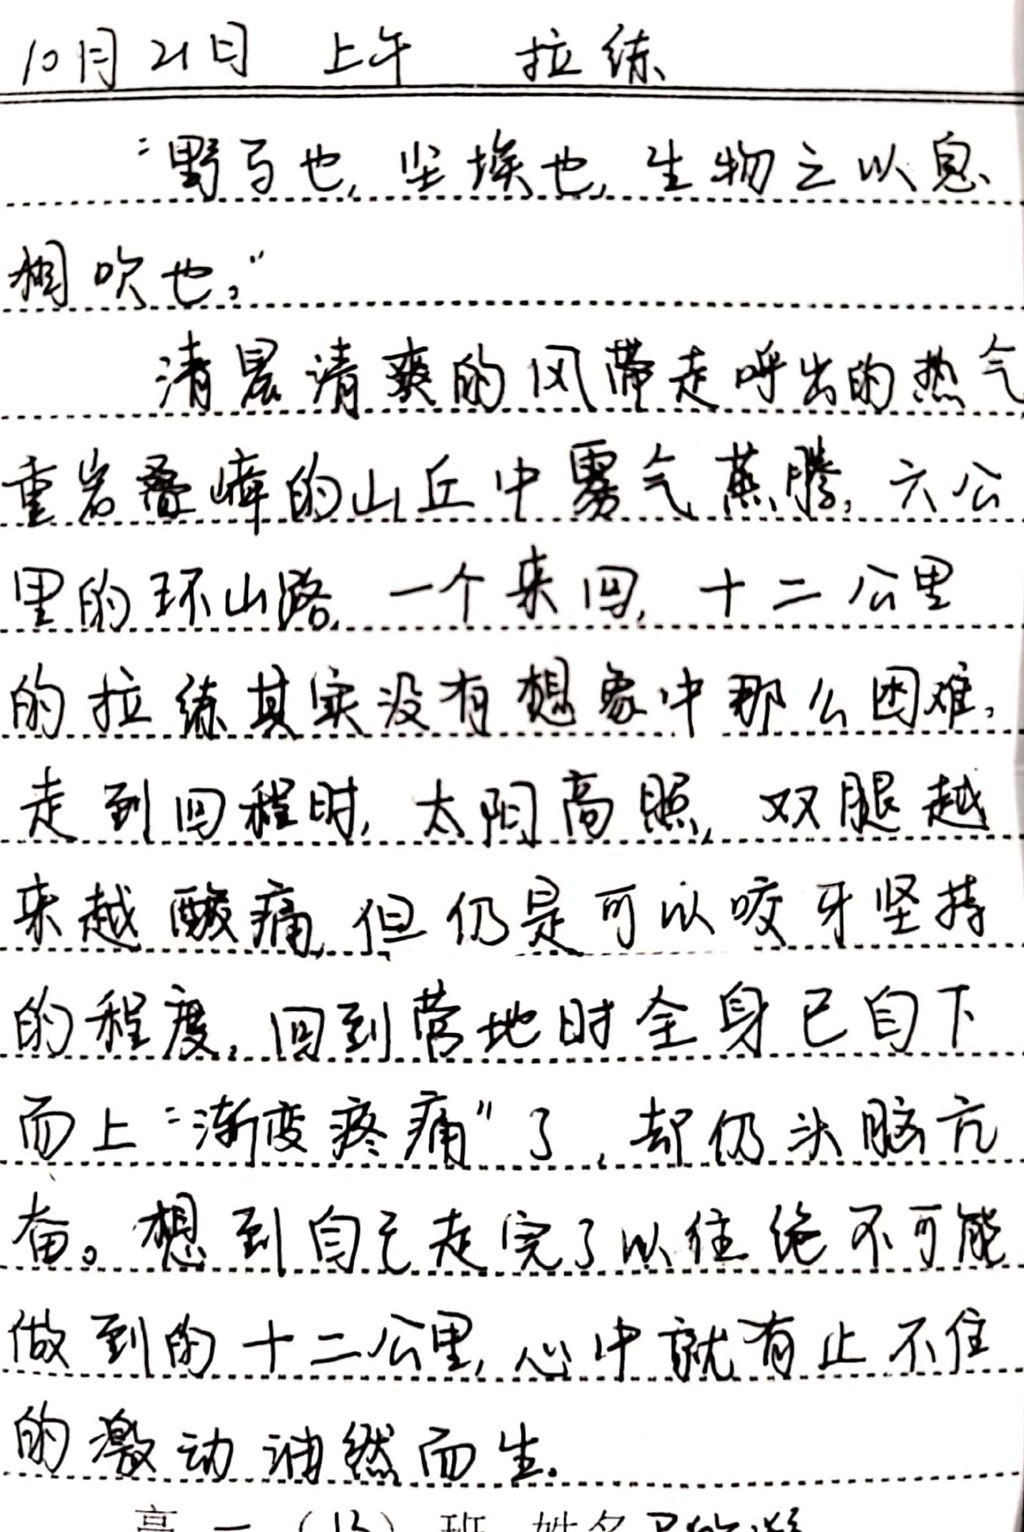 10月21日 上午 拉练
“野马也,尘埃也,生物之以息
相吹也。”
清晨清爽的风带走呼出的热气
重岩叠嶂的山丘中雾气蒸腾,六公
里的环山路,一个来回,十二公里
的拉练其实没有想象中那么困难,
走到回程时,太阳高照,双腿越
来越酸痛,但仍是可以咬牙坚持
的程度,回到营地时全身已自下
而上“渐变疼痛”了,却仍头脑亢
奋。想到自己走完了以往绝不可能
做到的十二公里,心中就有止不住
的激动油然而生。
高一(13)班 姓名